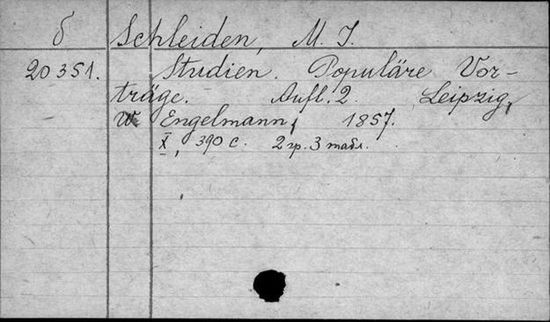 δ Schleiden, M. J.
20351. Studien. Populäre Vor-
träge. Aufl. 2. Leipzig,
W. Engelmann, 1857.
X, 390 с. 2 гр. 3 табл.